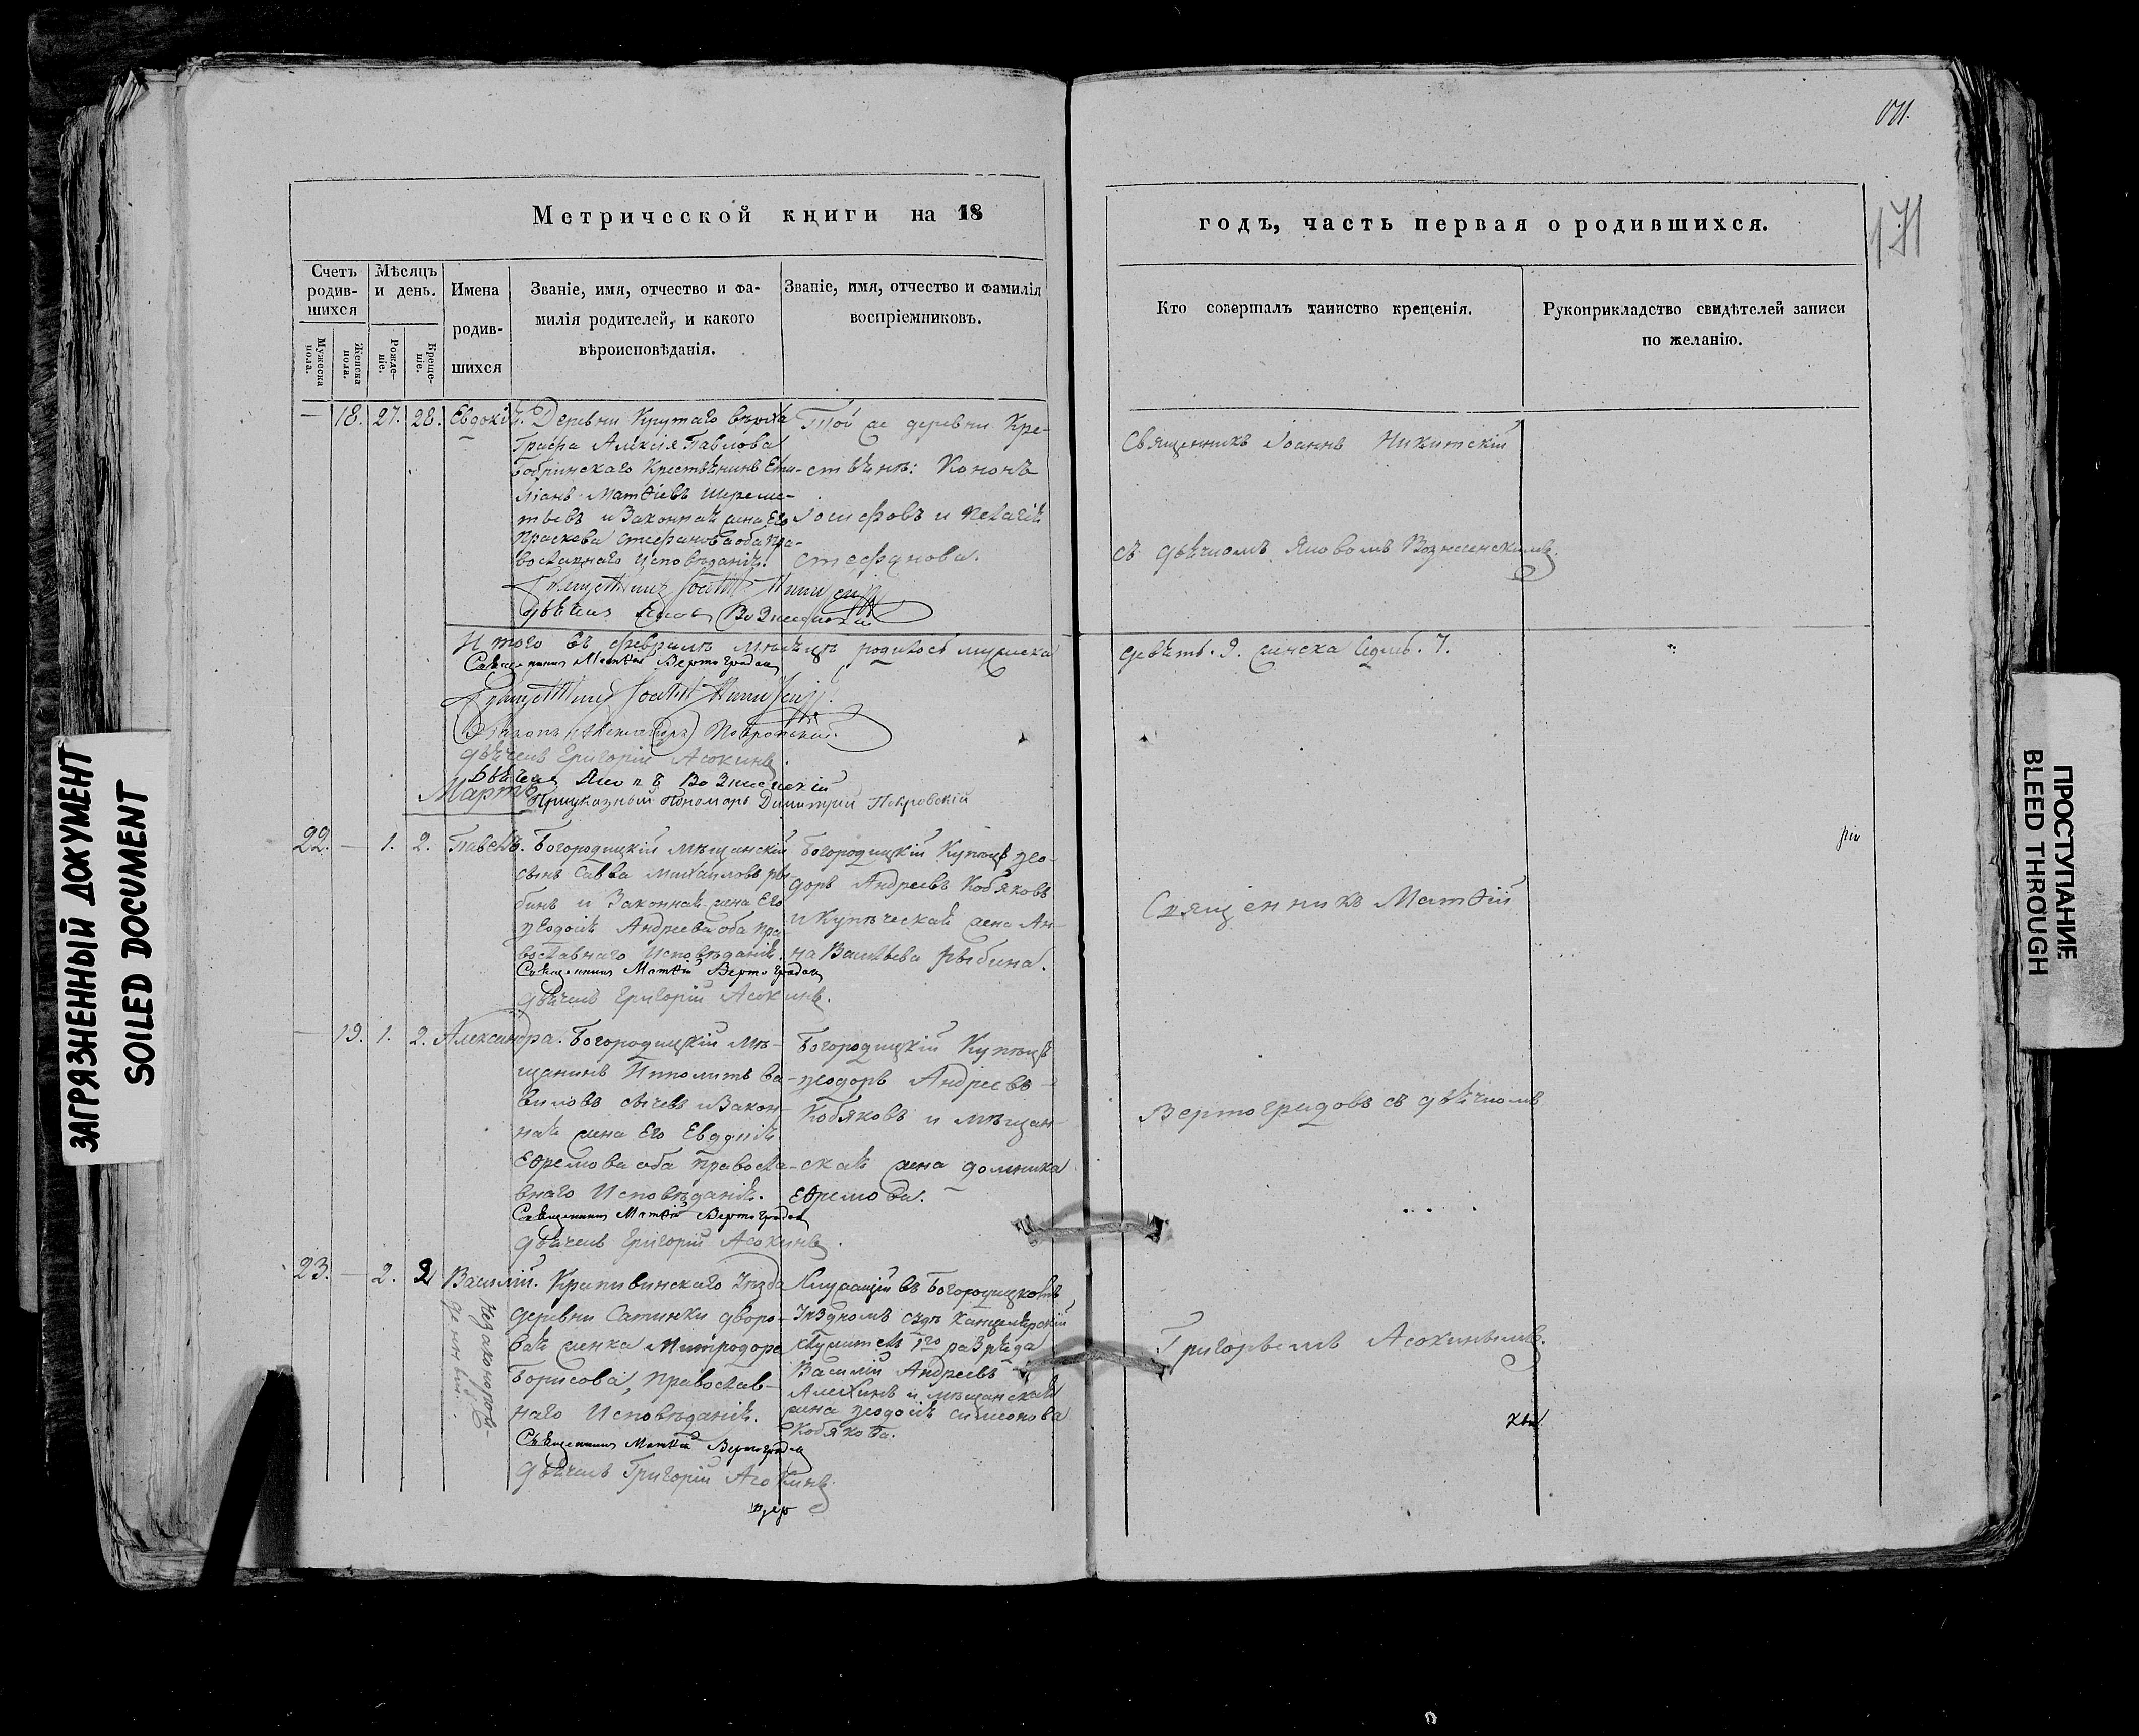 171.
171
Метрической книги на 18
годъ, часть первая о родившихся.
Счетъ родив-шихся
Мѣсяцъ и день.
Имена родив-шихся
Званіе, имя, отчество и фа-
милія родителей, и какого
вѣроисповѣданія.
Званіе, имя, отчество и фамилія
воспріемниковъ.
Кто совершалъ таинство крещенія.
Рукоприкладство свидѣтелей записи
по желанію.
Мужеска пола.
Женска пола.
Рожде-ніе.
Креще-ніе.
— 18. 27. 28. Евдокія.
Деревни Крутаго верха
Графа Алексія Павлова
Бобринскаго Крестьянинъ Еми-
ліанъ Матѳіевъ Шереме-
тьевъ и Законная жена Его
Праскева Стефанова оба пра-
вославнаго Исповѣданія.
Той же деревни Кре-
стьяне: Кононъ
Іосифовъ и Пелагія
Стефанова.
Священникъ Іоаннъ Никитскій
дьячекъ Яковъ Вознесенскій
Священникъ Іоаннъ Никитскій
съ дьячкомъ Яковомъ Вознесенскимъ.
Итого въ февралѣ мѣсяцѣ родилось мужеска
девять. 9. женска седмь. 7.
Священникъ Матѳій Вертоградовъ
Священникъ Іоаннъ Никитскій
Діаконъ Александръ Покровскій.
дьячекъ Григорій Асокинъ.
Дьячекъ Яковъ Вознесенскій
Приуказный Пономарь Димитрій Покровскій
Мартъ
22. — 1. 2. Павелъ.
Богородицкій мѣщанскій
сынъ Савва Михайловъ ры-
бинъ и Законная жена Его
Ѳеодосія Андреева оба пра
вославнаго Исповѣданія.
Священникъ Матѳій Вертоградовъ
дьячекъ Григорій Асокинъ.
Богородицкій Купецъ Ѳео-
доръ Андреевъ Кобяковъ
и Купеческая жена Ан-
на Васильева рыбина.
Священникъ Матѳій
— 19. 1. 2. Александра.
Богородицкій мѣ-
щанинъ Ипполитъ Ва-
виловъ сычевъ и Закон-
ная жена Его Евдокія
Ефремова оба правосла-
внаго Исповѣданія.
Священникъ Матѳій Вертоградовъ
дьячекъ Григорій Асокинъ.
Богородицкій Купецъ
Ѳеодоръ Андреевъ
Кобяковъ и мѣщан-
ская жена домника
Ефремова.
Вертоградовъ съ дьячкомъ
23. — 2. 2 Василій.
Незаконорож-
денный.
Крапивинскаго Уѣзда
деревни Сатинки дворо-
вая женка Митродора
Борисова, православ-
наго Исповѣданія.
Священникъ Матѳій Вертоградовъ
дьячекъ Григорій Асокинъ
Служащій въ Богородицкомъ
Уѣздномъ судѣ Канцелярскій
служитель 1го разряда
Василій Андреевъ
Алехинъ и мѣщанская
жена Ѳеодосія симеонова
Кобякова.
Григорьемъ Асокинымъ.
ЗАГРЯЗНЕННЫЙ ДОКУМЕНТ
SOILED DOCUMENT
ПРОСТУПАНИЕ
BLEED THROUGH